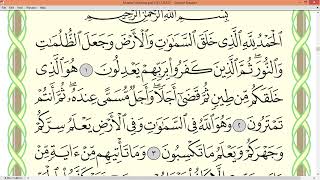 بِسْمِ اللَّهِ الرَّحْمَٰنِ الرَّحِيمِ
الْحَمْدُ لِلَّهِ الَّذِي خَلَقَ السَّمَٰوَٰتِ وَالْأَرْضَ وَجَعَلَ الظُّلُمَٰتِ
وَالنُّورَ ۖ ثُمَّ الَّذِينَ كَفَرُوا بِرَبِّهِمْ يَعْدِلُونَ ١ هُوَ الَّذِي
خَلَقَكُم مِّن طِينٍ ثُمَّ قَضَىٰ أَجَلًا ۖ وَأَجَلٌ مُّسَمًّى عِندَهُ ۖ ثُمَّ أَنتُمْ
تَمْتَرُونَ ٢ وَهُوَ اللَّهُ فِي السَّمَٰوَٰتِ وَفِي الْأَرْضِ يَعْلَمُ سِرَّكُمْ
وَجَهْرَكُمْ وَيَعْلَمُ مَا تَكْسِبُونَ ٣ وَمَا تَأْتِيهِم مِّنْ ءَايَةٍ مِّنْ